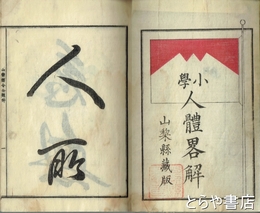 小學
人體畧解
山梨縣藏版
人
とらや書店